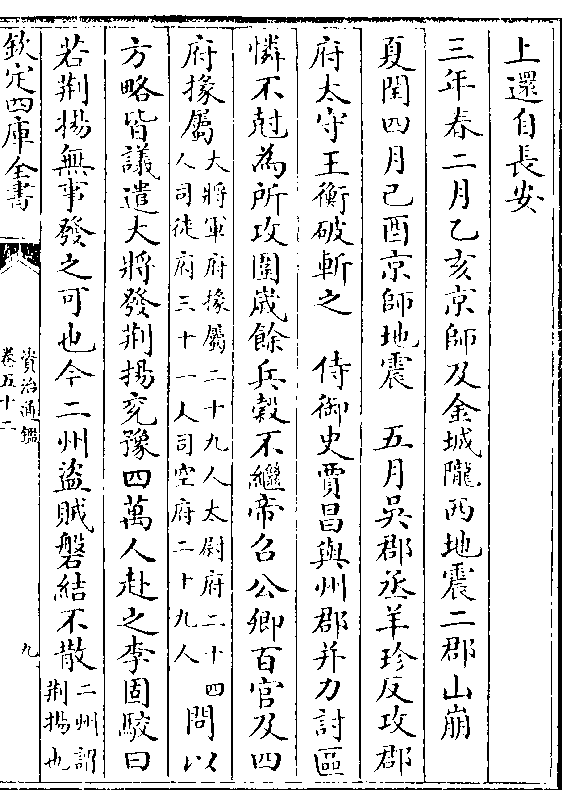 上還自長安
三年春二月乙亥京師及金城隴西地震二郡山崩
夏閏四月己酉京師地震　五月吳郡丞羊珍反攻郡
府太守王衡破斬之　侍御史賈昌與州郡并力討區
憐不尅為所攻圍歲餘兵穀不繼帝召公卿百官及四
府掾屬大將軍府掾屬二十九人太尉府二十四人司徒府三十一人司空府二十九人問以
方略皆議遣大將發荆揚兖豫四萬人赴之李固駮曰
若荆揚無事發之可也今二州盜賊磐結不散二州謂荆揚也
欽定四庫全書
資治通鑑
卷五十二
九